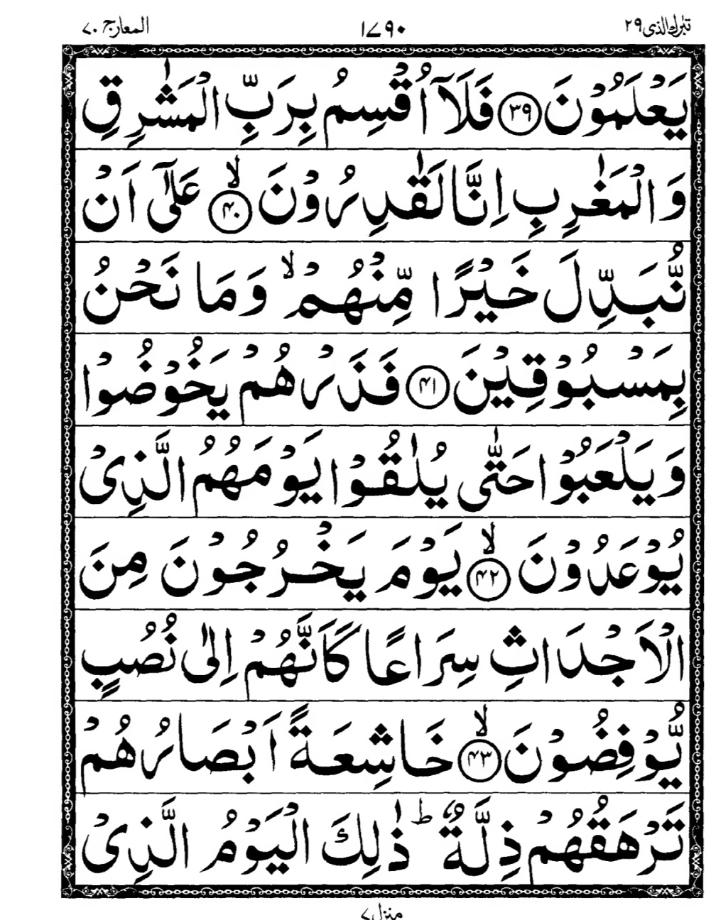 المعارج ٧٠ ١٧٩٠ تبٰرك الذی ٢٩
يَعْلَمُوْنَ ﴿٣٩﴾ فَلَآ اُقْسِمُ بِرَبِّ الْمَشٰرِقِ
وَالْمَغٰرِبِ اِنَّا لَقٰدِرُوْنَ ۙ﴿٤٠﴾ عَلٰٓى اَنْ
نُّبَدِّلَ خَيْرًا مِّنْهُمْ ۙ وَمَا نَحْنُ
بِمَسْبُوْقِيْنَ ﴿٤١﴾ فَذَرْهُمْ يَخُوْضُوْا
وَيَلْعَبُوْا حَتّٰى يُلٰقُوْا يَوْمَهُمُ الَّذِىْ
يُوْعَدُوْنَ ۙ﴿٤٢﴾ يَوْمَ يَخْرُجُوْنَ مِنَ
الْاَجْدَاثِ سِرَاعًا كَاَنَّهُمْ اِلٰى نُصُبٍ
يُّوْفِضُوْنَ ۙ﴿٤٣﴾ خَاشِعَةً اَبْصَارُهُمْ
تَرْهَقُهُمْ ذِلَّةٌ ؕ ذٰلِكَ الْيَوْمُ الَّذِىْ
منزل ٧